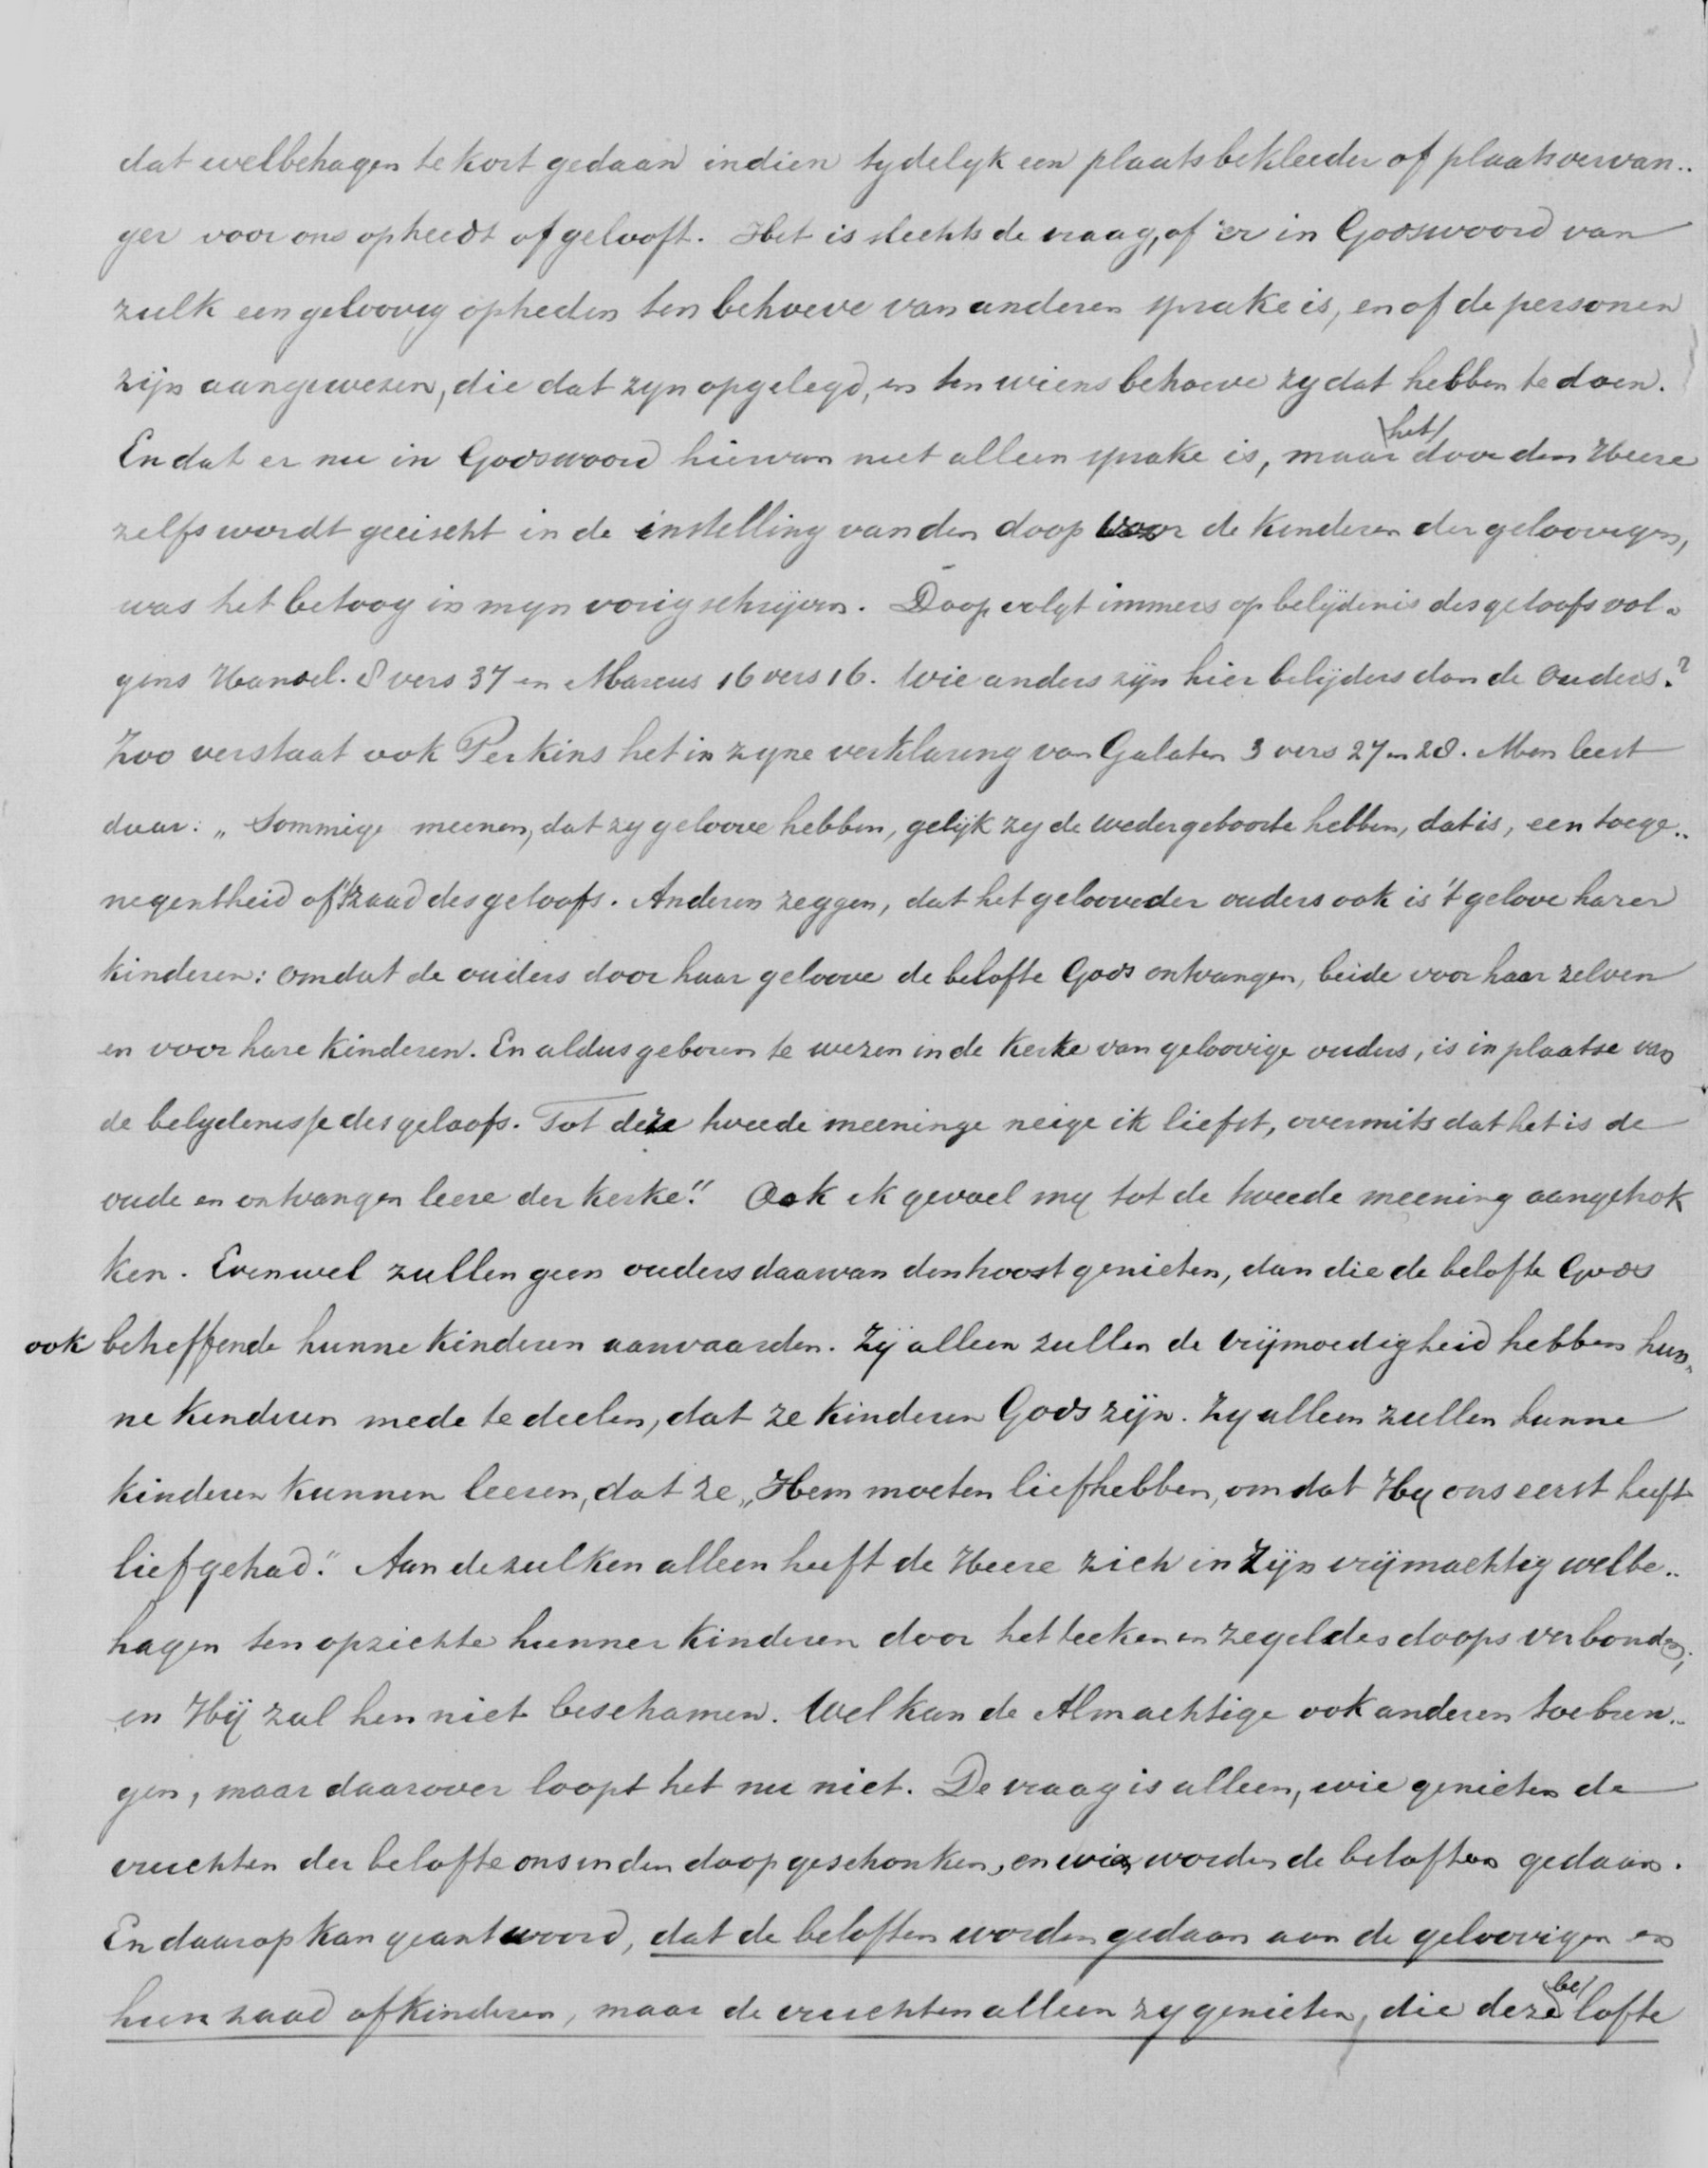 dat welbehagen te kort gedaan indien tydelyk een plaatsbekleeder of plaatsvervan..
ger voor ons optreedt of gelooft. Het is slechts de vraag, of er in Godswoord van
zulk een geloovig optreden ten behoeve van anderen sprake is, en of de personen
zijn aangewezen, die dat zyn opgelegd, en ten wiens behoeve zy dat hebben te doen.
En dat er nu in Godswoord hiervan niet alleen sprake is, maar het door den Heere
zelfs wordt geeischt in de instelling van den doop voor de kinderen der geloovigen,
was het betoog in myn vorig schrijven. Doop volgt immers op belijdenis des geloofs vol-
gens Handel. 8 vers 37 en Marcus 16 vers 16. Wie anders zijn hier belijders dan de ouders?
Zoo verstaat ook Perkins het in zyne verklaring van Galaten 3 vers 27 en 28. Men leest
daar: „Sommige meenen, dat zy geloove hebben, gelijk zy de wedergeboorte hebben, dat is, een toege..
negentheid of 't zaad des geloofs. Anderen zeggen, dat het geloove der ouders ook is 't geloove harer
kinderen: omdat de ouders door haar geloove de belofte Gods ontvangen, beide voor haar zelven
en voor hare kinderen. En aldus geboren te wezen in de kerke van geloovige ouders, is in plaatse van
de belydenisse des geloofs. Tot deze tweede meeninge neige ik liefst, overmits dat het is de
oude en ontvangen leere der kerke." Ook ik gevoel my tot de tweede meening aangetrok
ken. Evenwel zullen geen ouders daarvan den troost genieten, dan die de belofte Gods
ook betreffende hunne kinderen aanvaarden. Zij alleen zullen de vrijmoedigheid hebben hun-
ne kinderen mede te deelen, dat ze kinderen Gods zijn. Zy alleen zullen hunne
kinderen kunnen leeren, dat ze „Hem moeten liefhebben, omdat Hy ons eerst heeft
liefgehad." Aan dezulken alleen heeft de Heere zich in Zijn vrijmachtig welbe..
hagen ten opzichte hunner kinderen door het teeken en zegel des doops verbonden;
en Hij zal hen niet beschamen. Wel kan de Almachtige ook anderen toebren..
gen, maar daarover loopt het nu niet. De vraag is alleen, wie genieten de
vruchten der belofte ons in den doop geschonken, en wie worden de beloften gedaan.
En daarop kan geantwoord, dat de beloften worden gedaan aan de geloovigen en
hun zaad of kinderen, maar de vruchten alleen zy genieten, die deze belofte